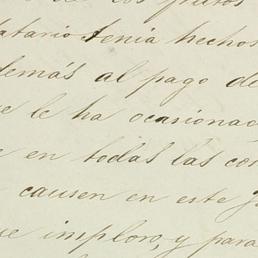 de los frutos
datario tenia hechos
demás al pago de
le ha ocasionac
en todas las cos
causen en este
ue imploro, y para